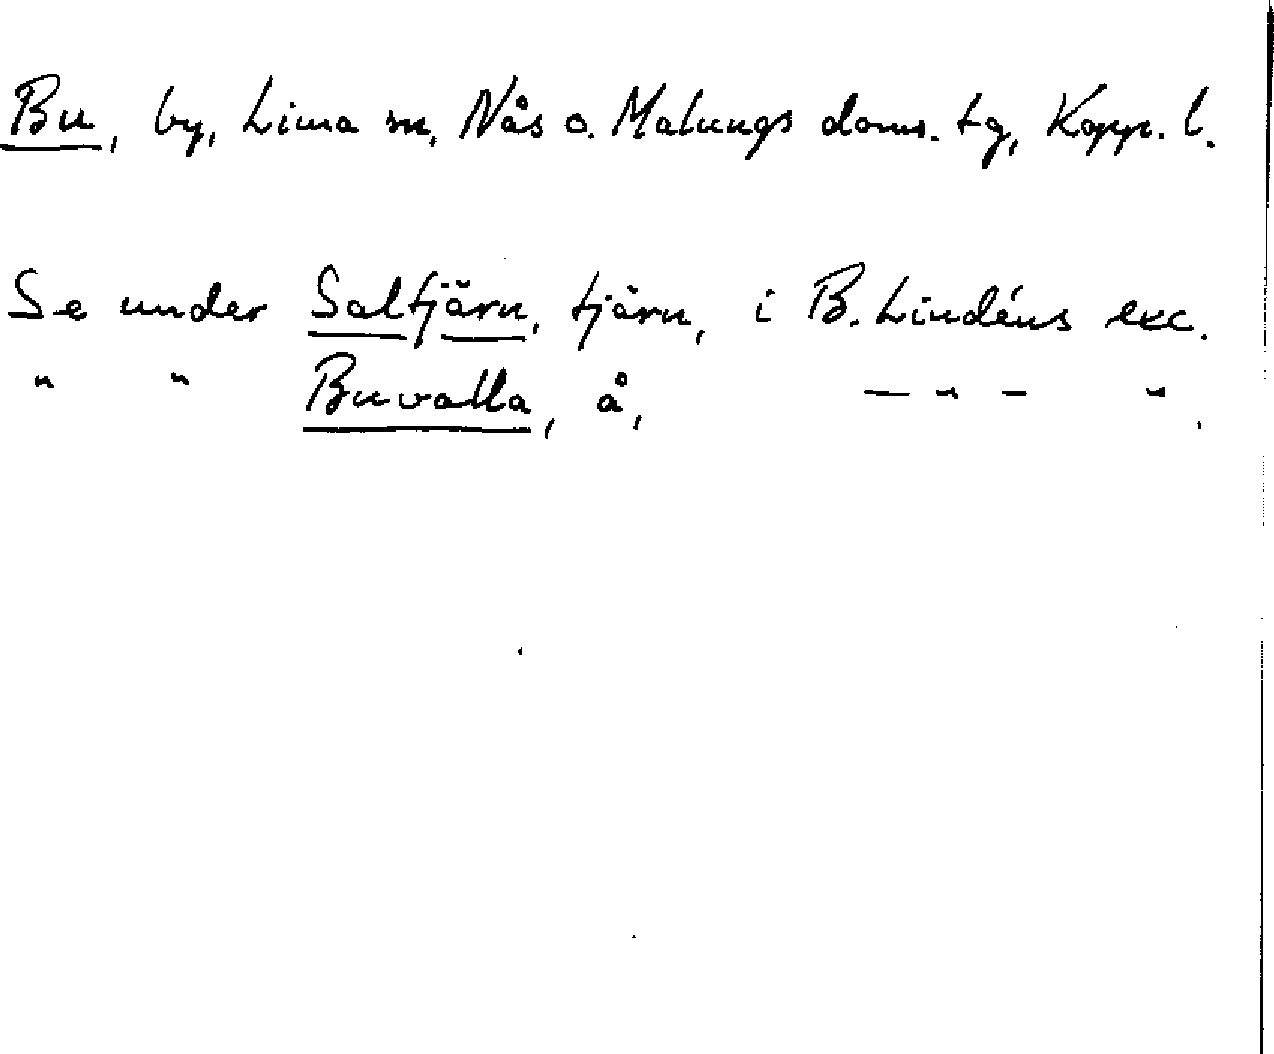 Bu, by, Lima sn, Nås o. Malungs doms. tg, Kopp. l.
Se under Saltjärn, tjärn, i B. Lindéns exc.
" " Buvalla, å, — " — ".